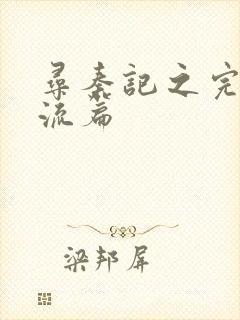 尋秦記之完
流篇
梁邦屏